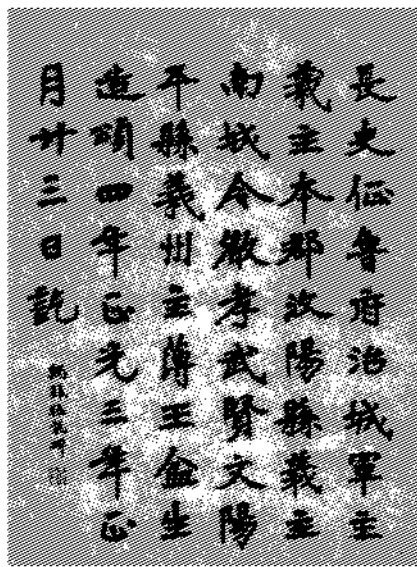 長史征魯府治城軍主
義主本郡汶陽縣義主
南城令嚴孝武賢文陽
平縣義州主薄王盆生
造頌四年正光三年正
月廿三日訖